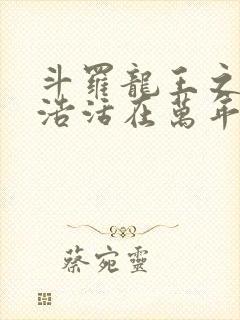 斗羅龍王之
浩活在萬年
蔡宛靈